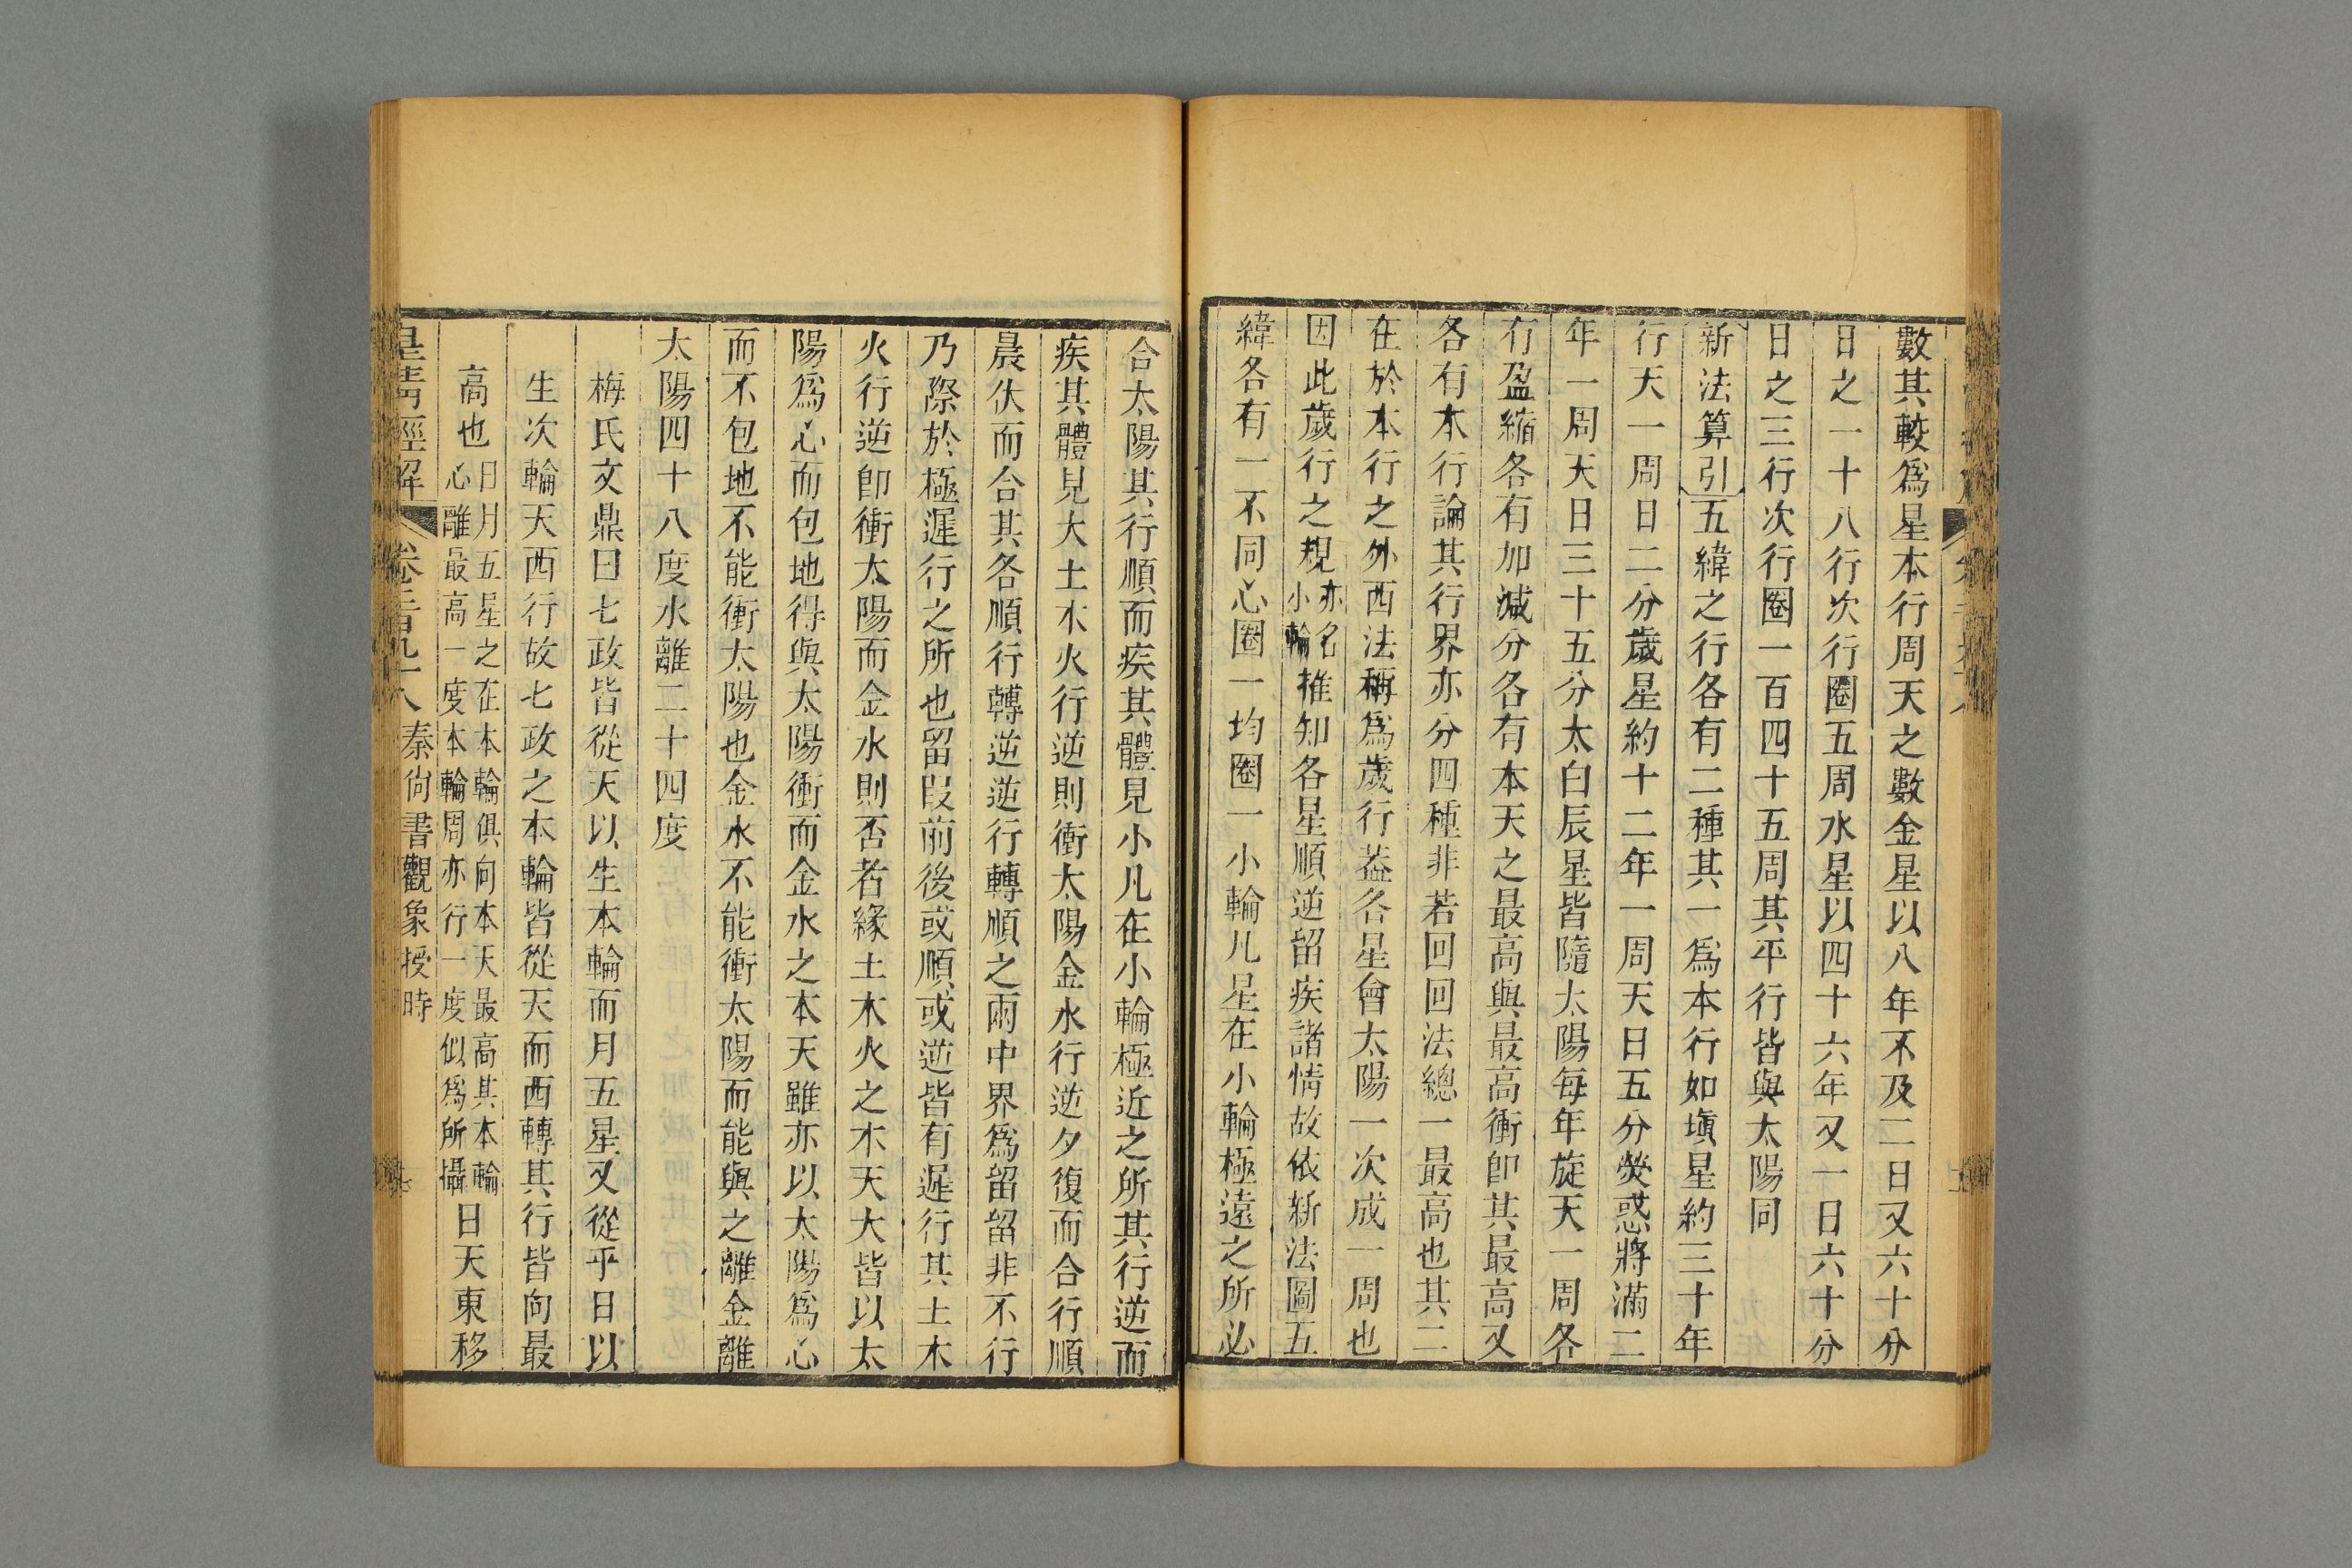 數其較爲星本行周天之數金星以八年不及二日又六十分
日之一十八行次行圈五周水星以四十六年又一日六十分
日之三行次行圈一百四十五周其平行皆與太陽同
新法算引五緯之行各有二種其一爲本行如塡星約三十年
行天一周日二分歲星約十二年一周天日五分熒惑將滿二
年一周天日三十五分太白辰星皆隨太陽每年旋天一周各
有盈縮各有加減分各有本天之最高與最高衝卽其最高又
各有本行論其行界亦分四種非若回回法總一最高也其二
在於本行之外西法稱爲歲行葢各星會太陽一次成一周也
因此歲行之規亦名小輪推知各星順逆留疾諸情故依新法圖五
緯各有一不同心圈一均圈一小輪凡星在小輪極遠之所必
合太陽其行順而疾其體見小凡在小輪極近之所其行逆而
疾其體見大土木火行逆則衝太陽金水行逆夕復而合行順
晨伏而合其各順行轉逆逆行轉順之兩中界爲留留非不行
乃際於極遲行之所也留段前後或順或逆皆有遲行其土木
火行逆卽衝太陽而金水則否者緣土木火之本天大皆以太
陽爲心而包地得與太陽衝而金水之本天雖亦以太陽爲心
而不包地不能衝太陽也金水不能衝太陽而能與之離金離
太陽四十八度水離二十四度
梅氏文鼎曰七政皆從天以生本輪而月五星又從乎日以
生次輪天西行故七政之本輪皆從天而西轉其行皆向最
高也日月五星之在本輪俱向本天最高其本輪心離最高一度本輪周亦行一度似爲所攝日天東移
皇淸經解 卷二百九十八 秦尙書觀象授時